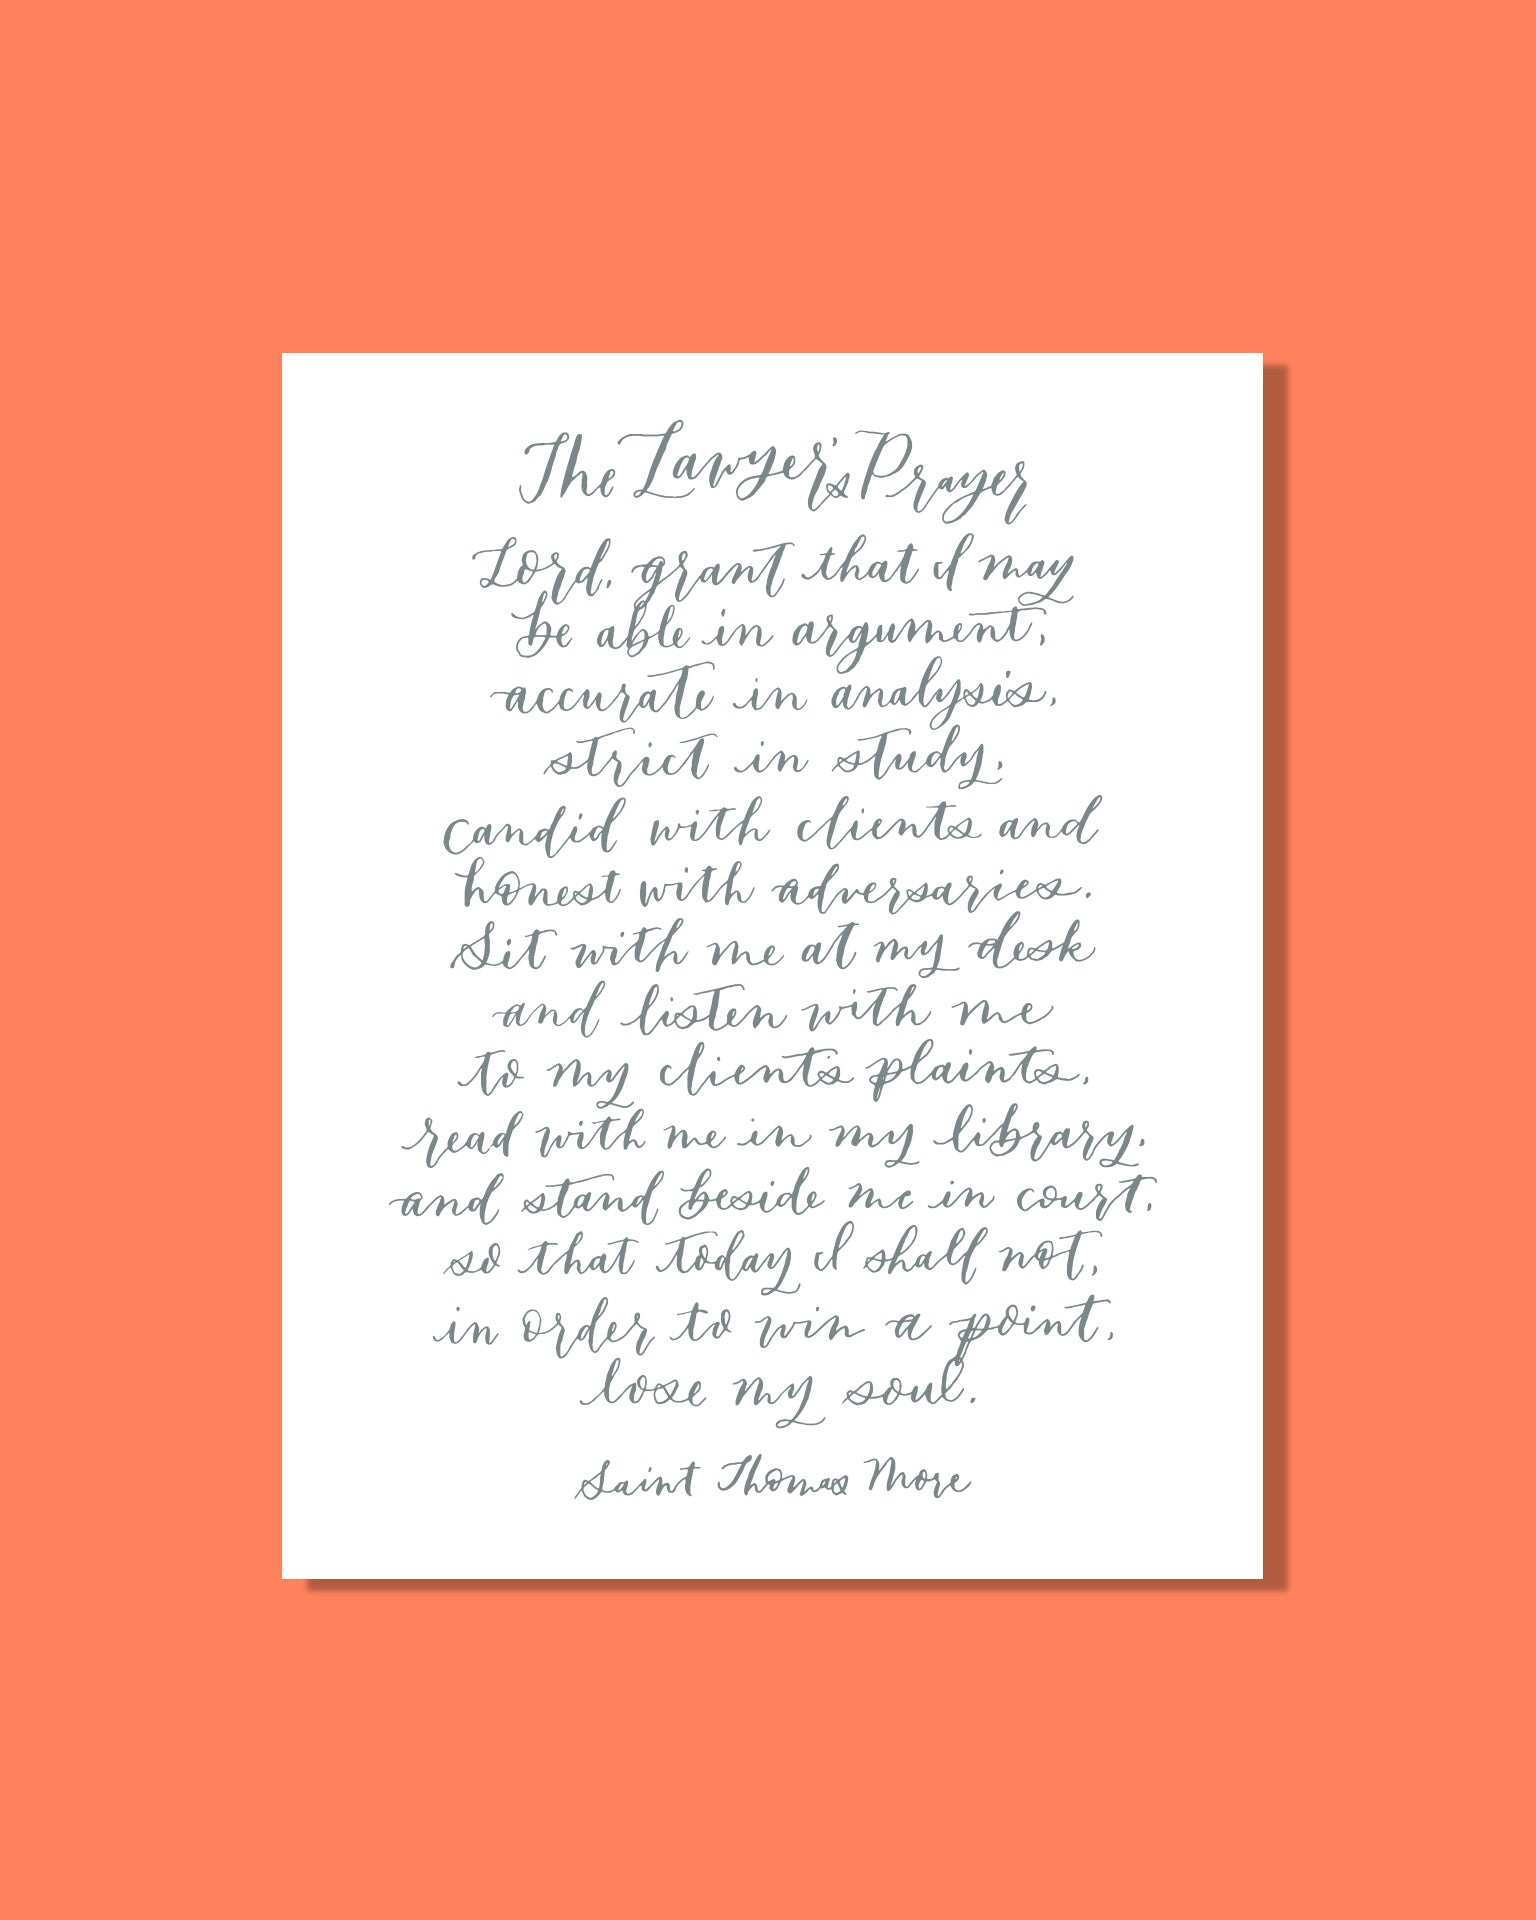 The Lawyer's Prayer
Lord, grant that I may
be able in argument,
accurate in analysis,
strict in study,
candid with clients and
honest with adversaries.
Sit with me at my desk
and listen with me
to my client's plaints,
read with me in my library,
and stand beside me in court,
so that today I shall not,
in order to win a point,
lose my soul.
Saint Thomas More